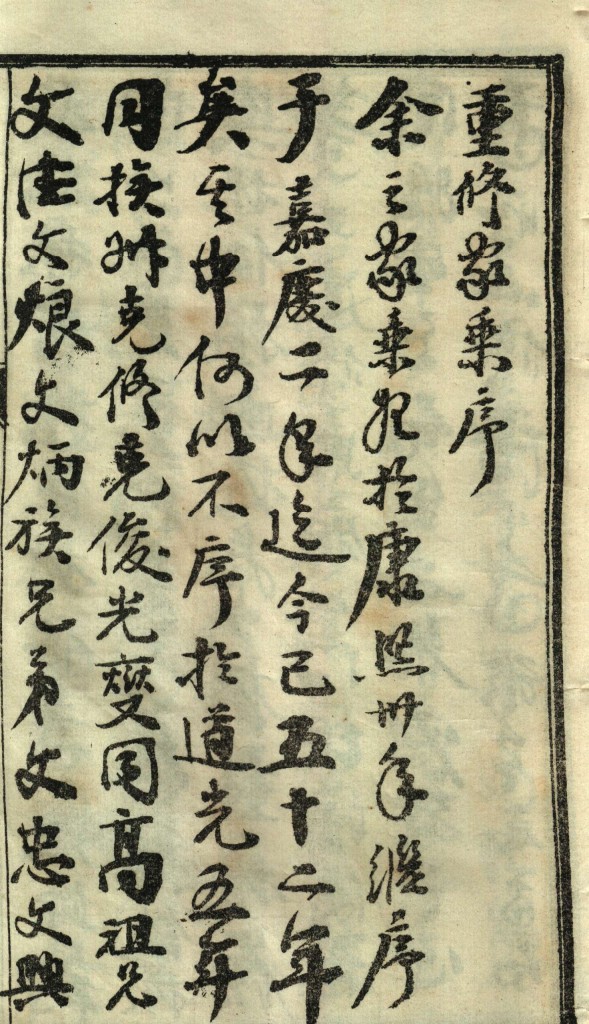 重修家乘序
余之家乘起於康熙卅年繼序
于嘉慶二年迄今已五十二年
矣其中何以不序於道光五年
同族叔克修堯俊光燮同高祖兄
文德文烺文炳族兄弟文忠文興